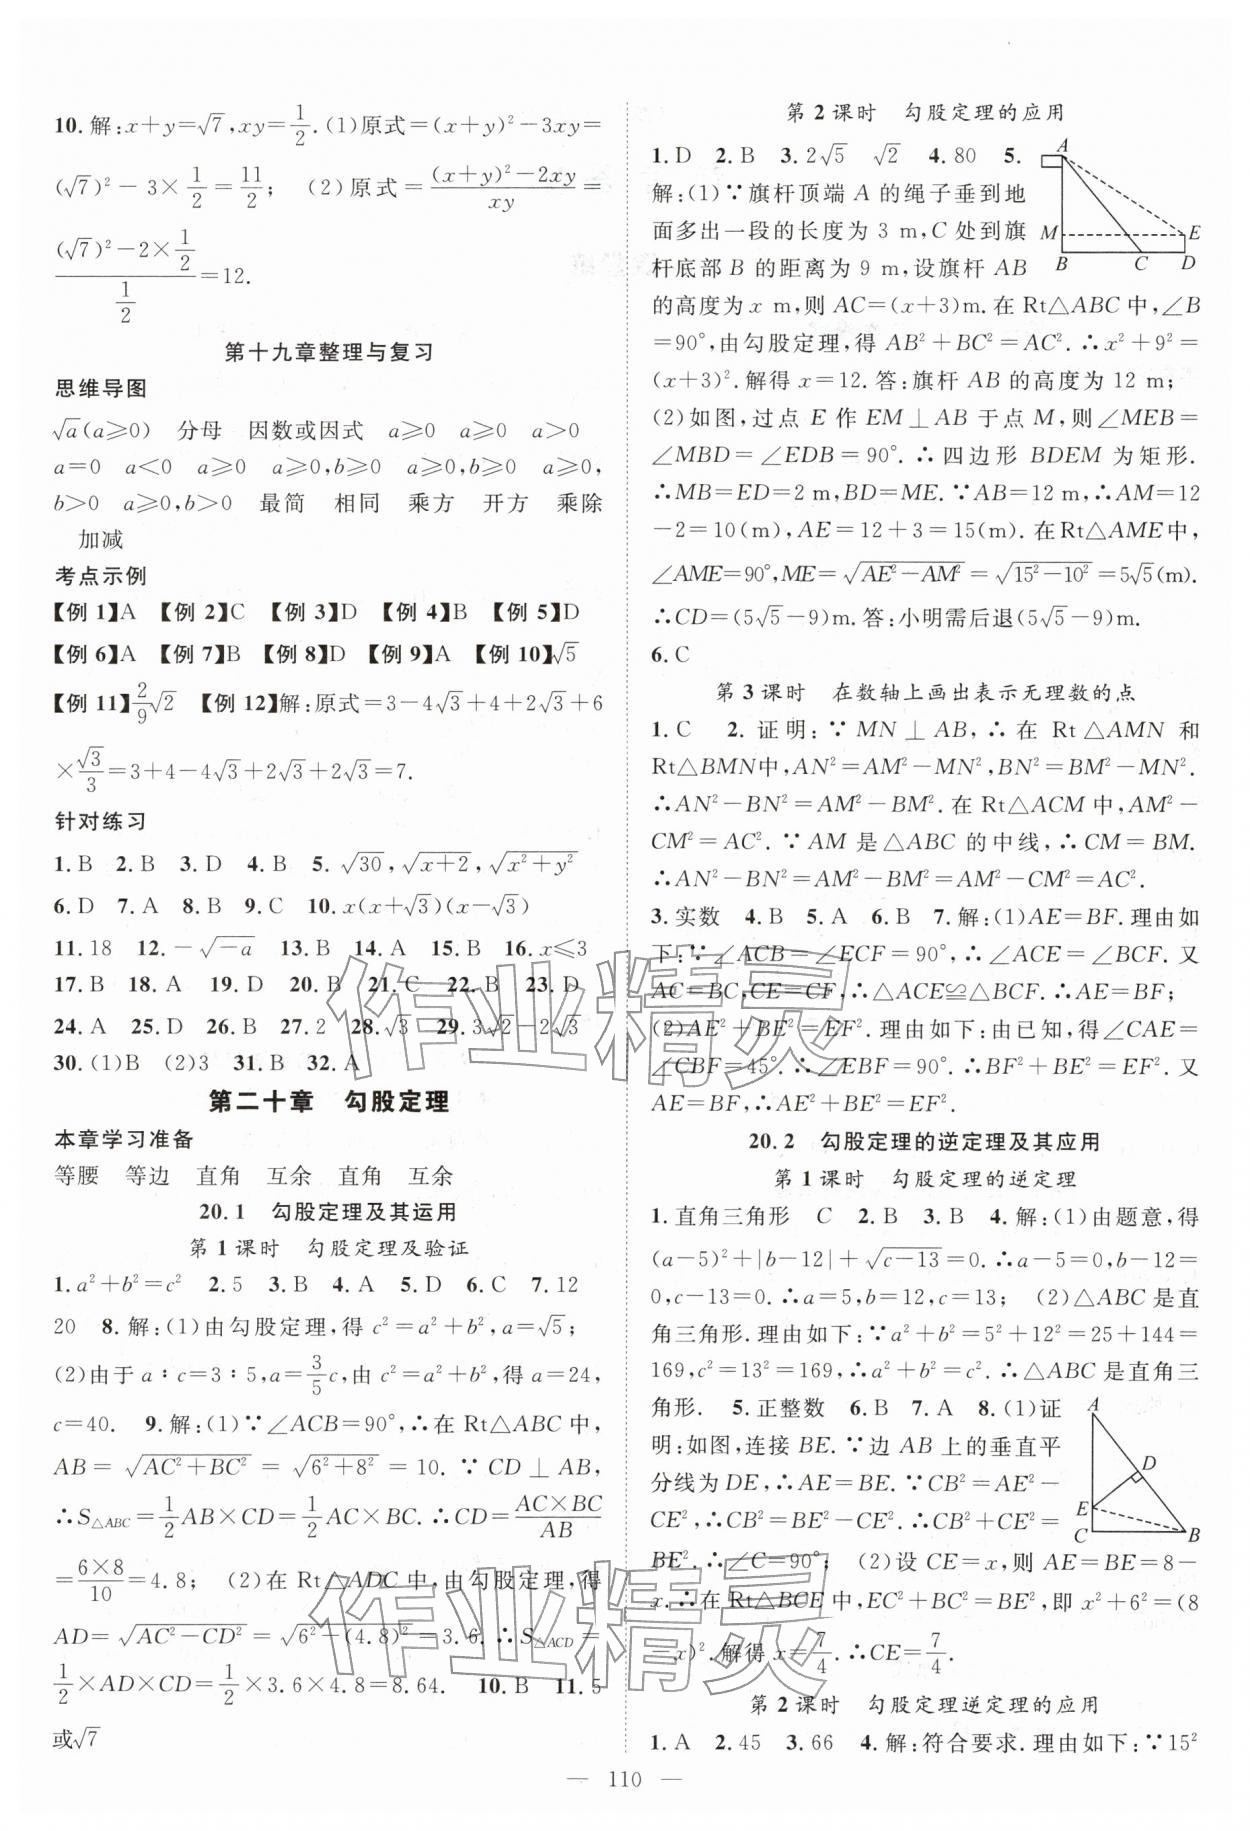 10.解:x+y=√7,xy=1/2.(1)原式=(x+y)²-3xy=
(√7)²-3×1/2=11/2; (2)原式=((x+y)²-2xy)/xy=
((√7)²-2×1/2)/(1/2)=12.
第十九章整理与复习
思维导图
√a(a≥0) 分母 因数或因式 a≥0 a≥0 a>0
a=0 a<0 a≥0 a≥0,b≥0 a≥0,b≥0 a≥0,
b>0 a≥0,b>0 最简 相同 乘方 开方 乘除
加减
考点示例
【例1】A 【例2】C 【例3】D 【例4】B 【例5】D
【例6】A 【例7】B 【例8】D 【例9】A 【例10】√5
【例11】2/9√2 【例12】解:原式=3-4√3+4+2√3+6
×√3/3=3+4-4√3+2√3+2√3=7.
针对练习
1.B 2.B 3.D 4.B 5.√30,√(x+2),√(x²+y²)
6.D 7.A 8.B 9.C 10.x(x+√3)(x-√3)
11.18 12.-√(-a) 13.B 14.A 15.B 16.x≤3
17.B 18.A 19.D 20.B 21.C 22.B 23.D
24.A 25.D 26.B 27.2 28.√3 29.3√2-2√3
30.(1)B (2)3 31.B 32.A
第二十章 勾股定理
本章学习准备
等腰 等边 直角 互余 直角 互余
20.1 勾股定理及其运用
第1课时 勾股定理及验证
1.a²+b²=c² 2.5 3.B 4.A 5.D 6.C 7.12
20 8.解:(1)由勾股定理,得c²=a²+b²,a=√5;
(2)由于a∶c=3∶5,a=3/5c,由c²=a²+b²,得a=24,
c=40. 9.解:(1)∵∠ACB=90°,∴在Rt△ABC中,
AB=√(AC²+BC²)=√(6²+8²)=10.∵CD⊥AB,
∴S△ABC=1/2AB×CD=1/2AC×BC.∴CD=(AC×BC)/AB
=(6×8)/10=4.8; (2)在Rt△ADC中,由勾股定理,得
AD=√(AC²-CD²)=√(6²-(4.8)²)=3.6.∴S△ACD=
1/2×AD×CD=1/2×3.6×4.8=8.64. 10.B 11.5
或√7
第2课时 勾股定理的应用
1.D 2.B 3.2√5 √2 4.80 5.
解:(1)∵旗杆顶端A的绳子垂到地
面多出一段的长度为3 m,C处到旗
杆底部B的距离为9 m,设旗杆AB
的高度为x m,则AC=(x+3)m.在Rt△ABC中,∠B
=90°,由勾股定理,得AB²+BC²=AC².∴x²+9²=
(x+3)².解得x=12.答:旗杆AB的高度为12 m;
(2)如图,过点E作EM⊥AB于点M,则∠MEB=
∠MBD=∠EDB=90°.∴四边形BDEM为矩形.
∴MB=ED=2 m,BD=ME.∵AB=12 m,∴AM=12
-2=10(m),AE=12+3=15(m).在Rt△AME中,
∠AME=90°,ME=√(AE²-AM²)=√(15²-10²)=5√5(m).
∴CD=(5√5-9)m.答:小明需后退(5√5-9)m.
6.C
A
M
E
B
C
D
第3课时 在数轴上画出表示无理数的点
1.C 2.证明:∵MN⊥AB,∴在Rt△AMN和
Rt△BMN中,AN²=AM²-MN²,BN²=BM²-MN².
∴AN²-BN²=AM²-BM².在Rt△ACM中,AM²-
CM²=AC².∵AM是△ABC的中线,∴CM=BM.
∴AN²-BN²=AM²-BM²=AM²-CM²=AC².
3.实数 4.B 5.A 6.B 7.解:(1)AE=BF.理由如
下:∵∠ACB=∠ECF=90°,∴∠ACE=∠BCF.又
AC=BC,CE=CF,∴△ACE≌△BCF.∴AE=BF;
(2)AE²+BE²=EF².理由如下:由已知,得∠CAE=
∠CBF=45°.∴∠EBF=90°.∴BF²+BE²=EF².又
AE=BF,∴AE²+BE²=EF².
20.2 勾股定理的逆定理及其应用
第1课时 勾股定理的逆定理
1.直角三角形 C 2.B 3.B 4.解:(1)由题意,得
(a-5)²+|b-12|+√(c-13)=0.∴a-5=0,b-12=
0,c-13=0.∴a=5,b=12,c=13; (2)△ABC是直
角三角形.理由如下:∵a²+b²=5²+12²=25+144=
169,c²=13²=169,∴a²+b²=c².∴△ABC是直角三
角形. 5.正整数 6.B 7.A 8.(1)证
明:如图,连接BE.∵边AB上的垂直平
分线为DE,∴AE=BE.∵CB²=AE²-
CE²,∴CB²=BE²-CE².∴CB²+CE²=
BE².∴∠C=90°; (2)设CE=x,则AE=BE=8-
x.∴在Rt△BCE中,EC²+BC²=BE²,即x²+6²=(8
-x)².解得x=7/4.∴CE=7/4.
A
D
E
C
B
第2课时 勾股定理逆定理的应用
1.A 2.45 3.66 4.解:符合要求.理由如下:∵15²
— 110 —
作业精灵
作业精灵